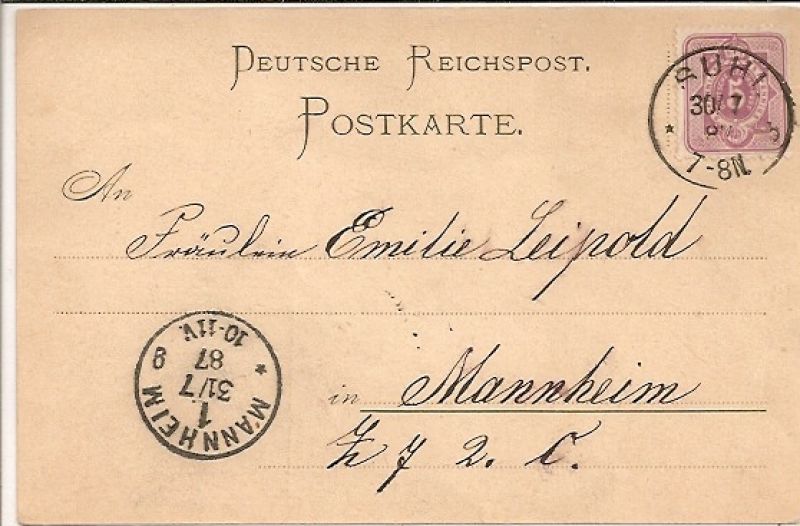 DEUTSCHE REICHSPOST.
POSTKARTE.
SUHL
30/7
87
7-8N.
5
An
Fräulein Emilie Leipold
in Mannheim
Z 7 2. C.
* MANNHEIM 8
1
31/7
87
10-11V.